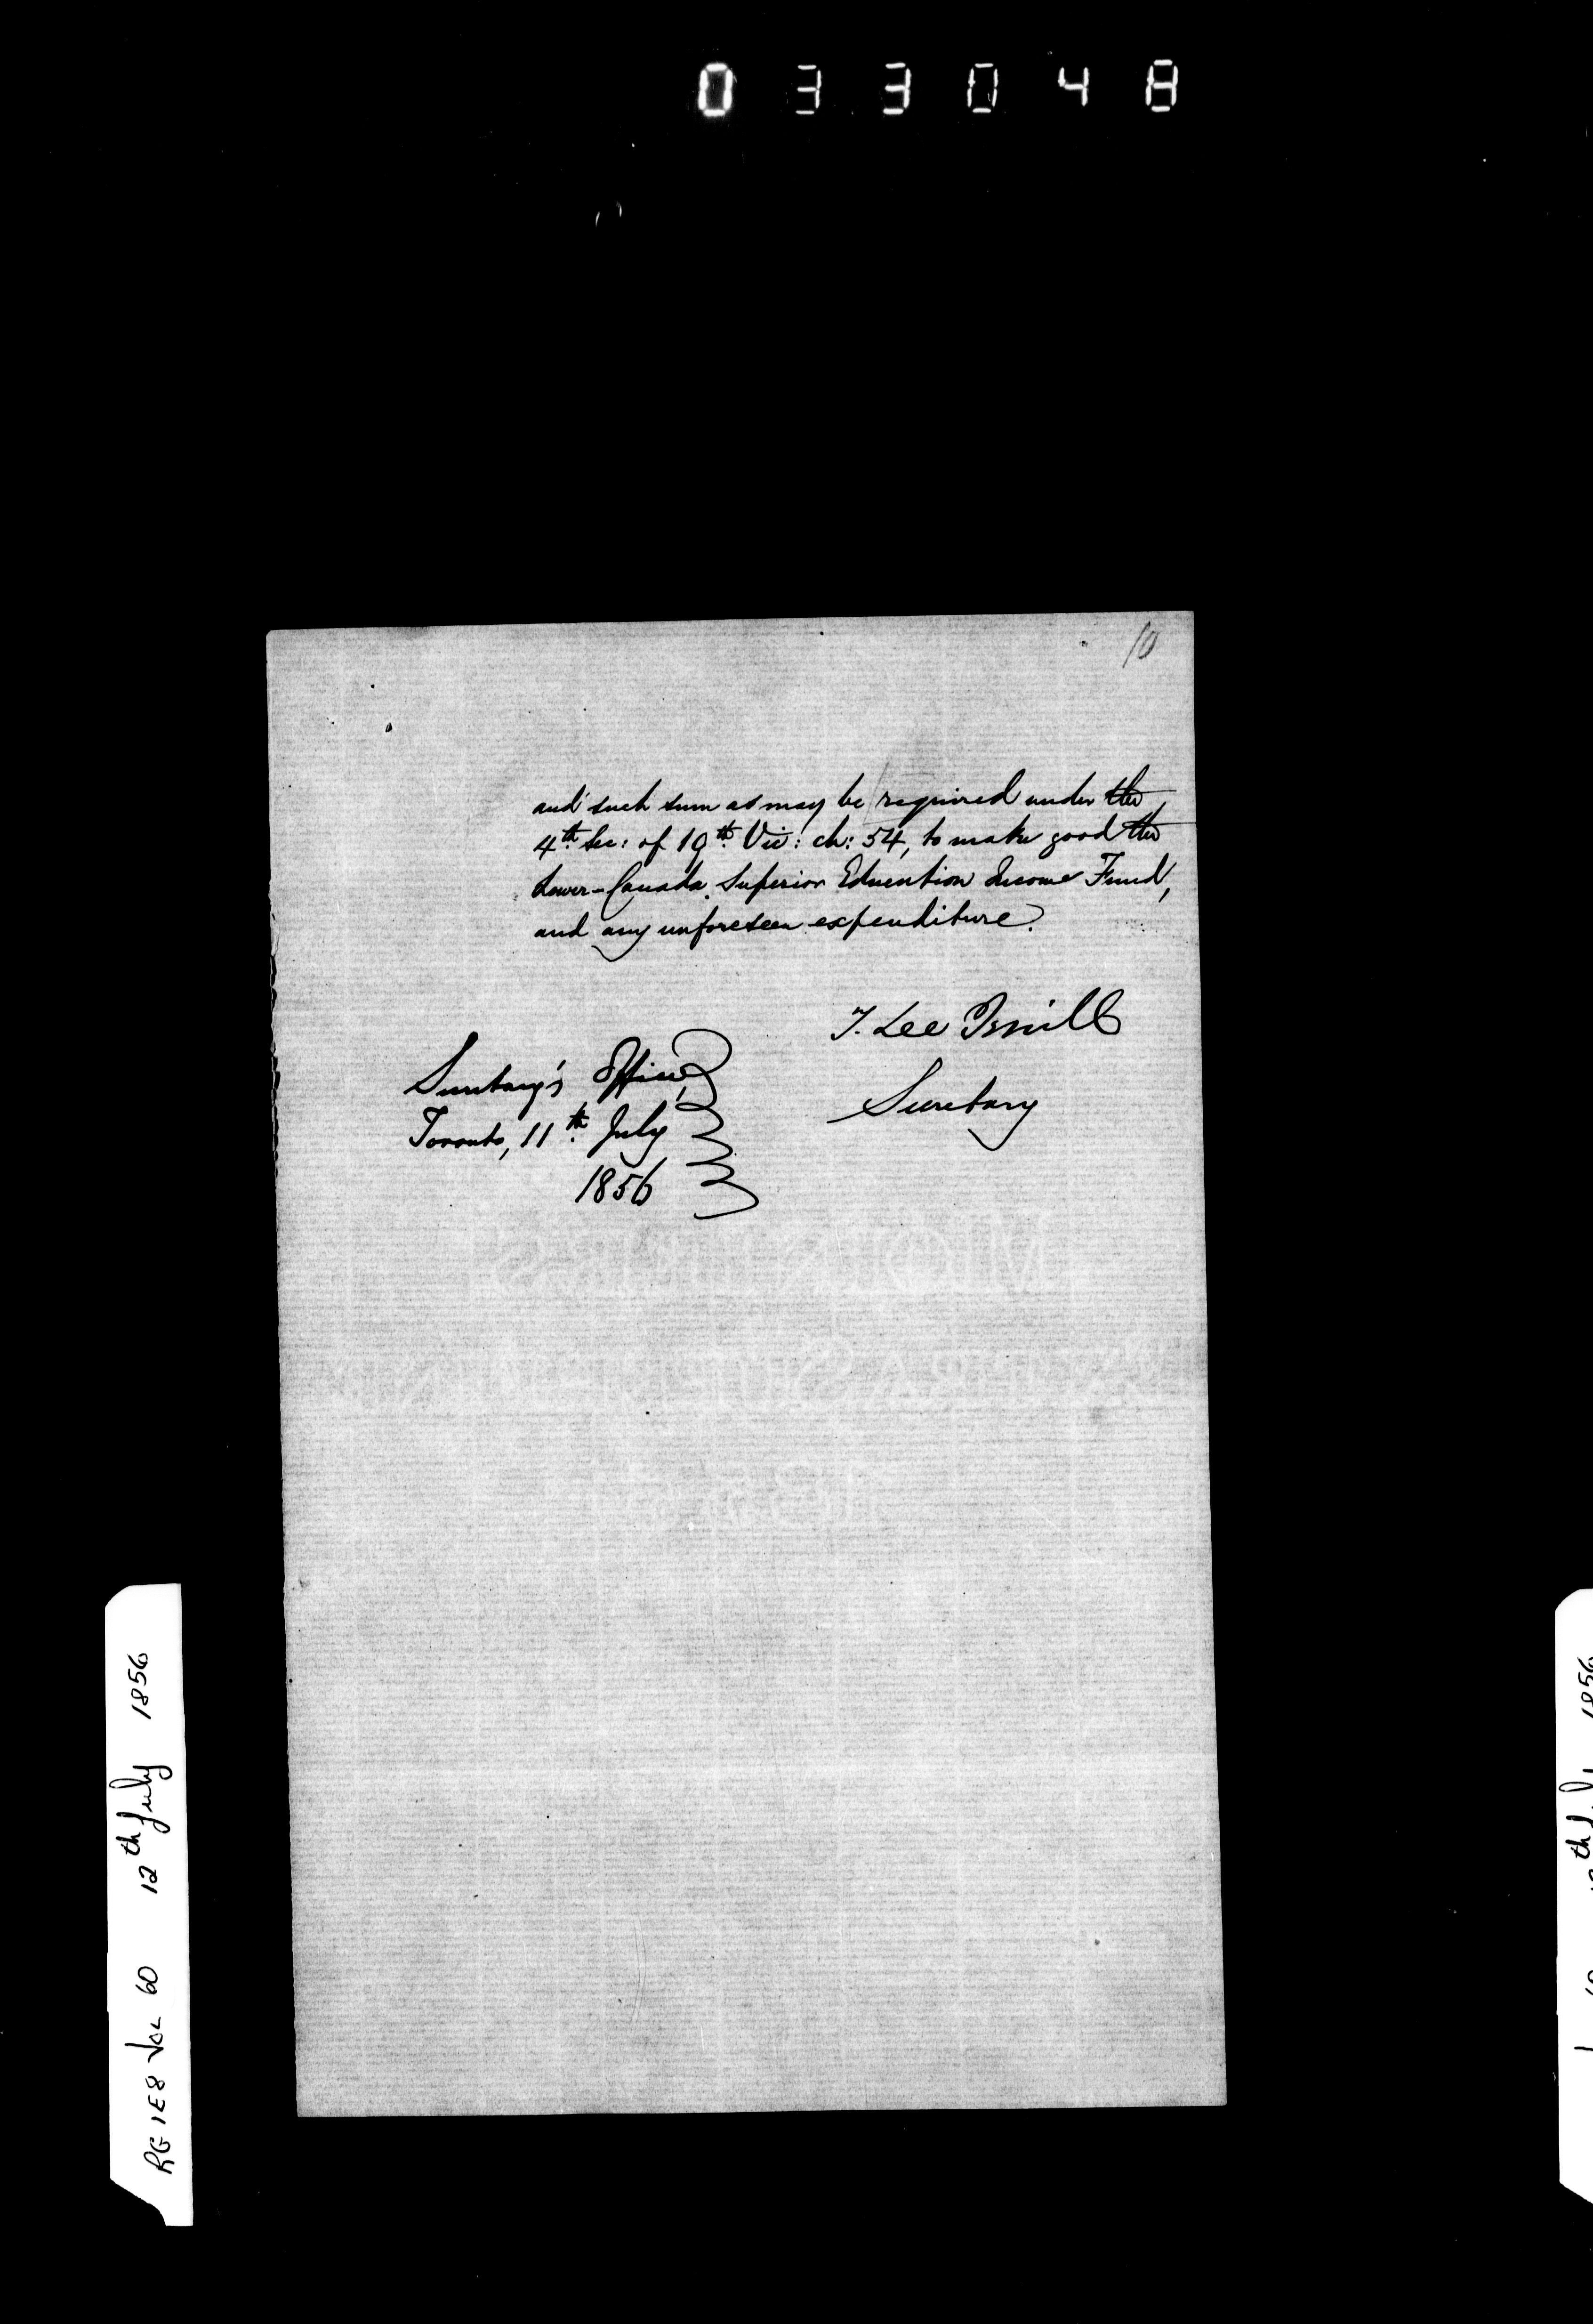 033048
10
and such sum as may be required under the
4th Sec: of 19th Vic: ch: 54, to make good the
Lower-Canada Superior Education Income Fund,
and any unforeseen expenditure.
T. Lee Terrill
Secretary
Secretary's Office,
Toronto, 11th July
1856
RG 1E8 Vol 60 12th July 1856